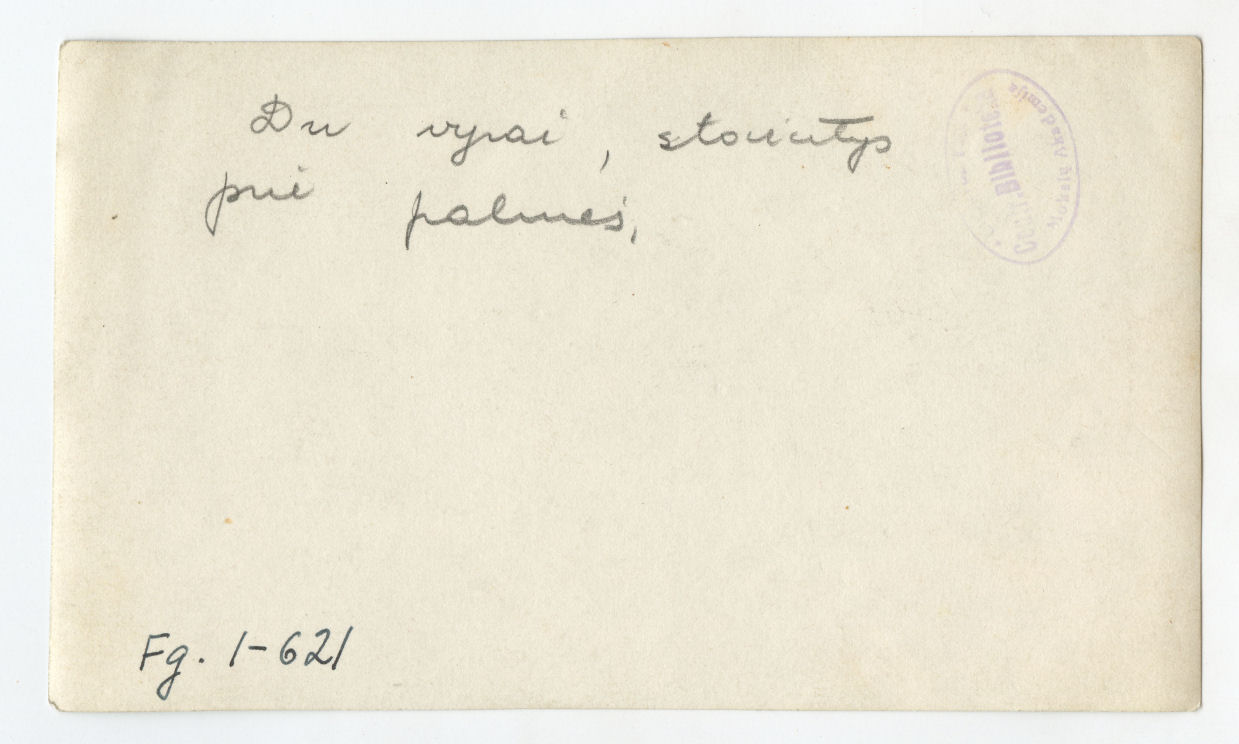 Du vyrai, stovintys
prie palmės,
Mokslų Akademija
Centr. Biblioteka
Fg. 1-621